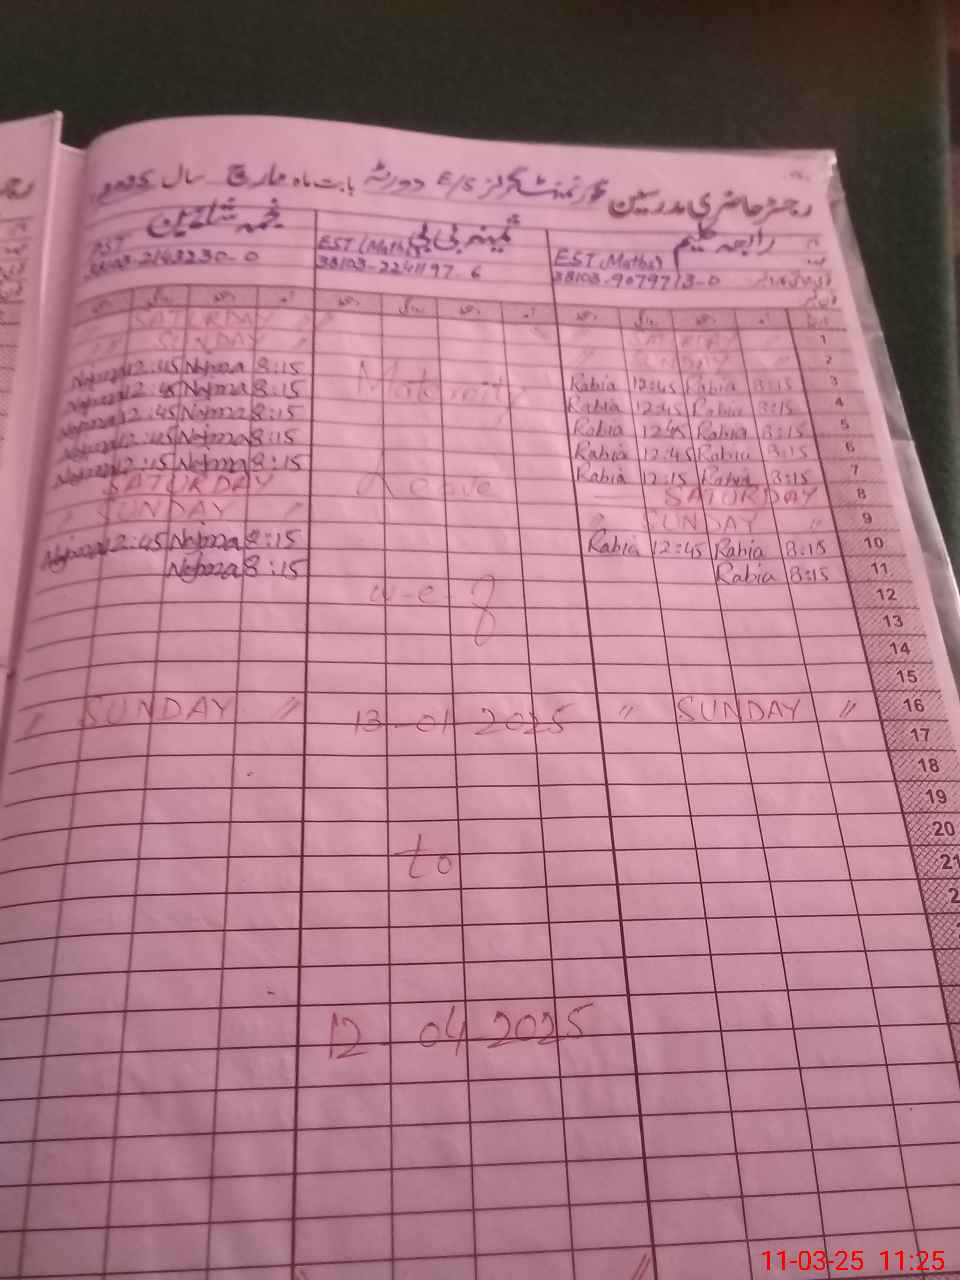 رجسٹر حاضری مدرسین گورنمنٹ گرلز E/S دورٹہ بابت ماہ مارچ سال 2025ء
رابعہ کلیم ثمینہ بی بی نجمہ شاہین
EST (Maths) EST (Maths) PST
38103-9079713-0 38103-2241197-6 38103-2143230-0
SATURDAY SATURDAY 1
〃 SUNDAY 〃 SUNDAY 〃 2
Najma 12:45 Najma 8:15 Maternity Rabia 12:45 Rabia 8:15 3
Najma 12:45 Najma 8:15 Rabia 12:45 Rabia 8:15 4
Najma 12:45 Najma 8:15 Rabia 12:45 Rabia 8:15 5
Najma 12:45 Najma 8:15 Rabia 12:45 Rabia 8:15 6
Najma 12:15 Najma 8:15 Leave Rabia 12:15 Rabia 8:15 7
SATURDAY SATURDAY 8
〃 SUNDAY 〃 〃 SUNDAY 〃 9
Najma 12:45 Najma 8:15 Rabia 12:45 Rabia 8:15 10
Najma 8:15 Rabia 8:15 11
w-e-f 12
13
14
15
〃 SUNDAY 〃 13-01-2025 〃 SUNDAY 〃 16
17
18
19
20
to 21
12-04-2025
11-03-25 11:25